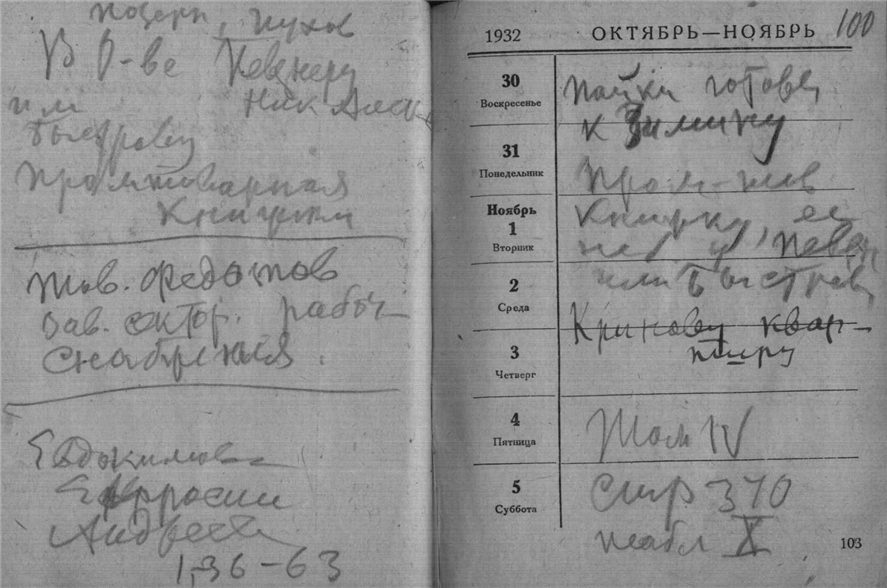 В О-ве Певзнеру
или Ник. Алек
Быстрову
промтоварная
книжки
Тов. Федотов
зав. сектор. рабоч
снабжения.
Евдокимова
Ефросин
Андреев
1-36-63
1932 ОКТЯБРЬ—НОЯБРЬ 100
30
Воскресенье
пайки готов
к Зимину
31
Понедельник
пром-тов
Ноябрь
1
Вторник
книжку, ее
нет у Певзн
2
Среда
или Быстров
Кринову квар-
тиру
3
Четверг
4
Пятница
Том IV
5
Суббота
стр 370
табл X
103